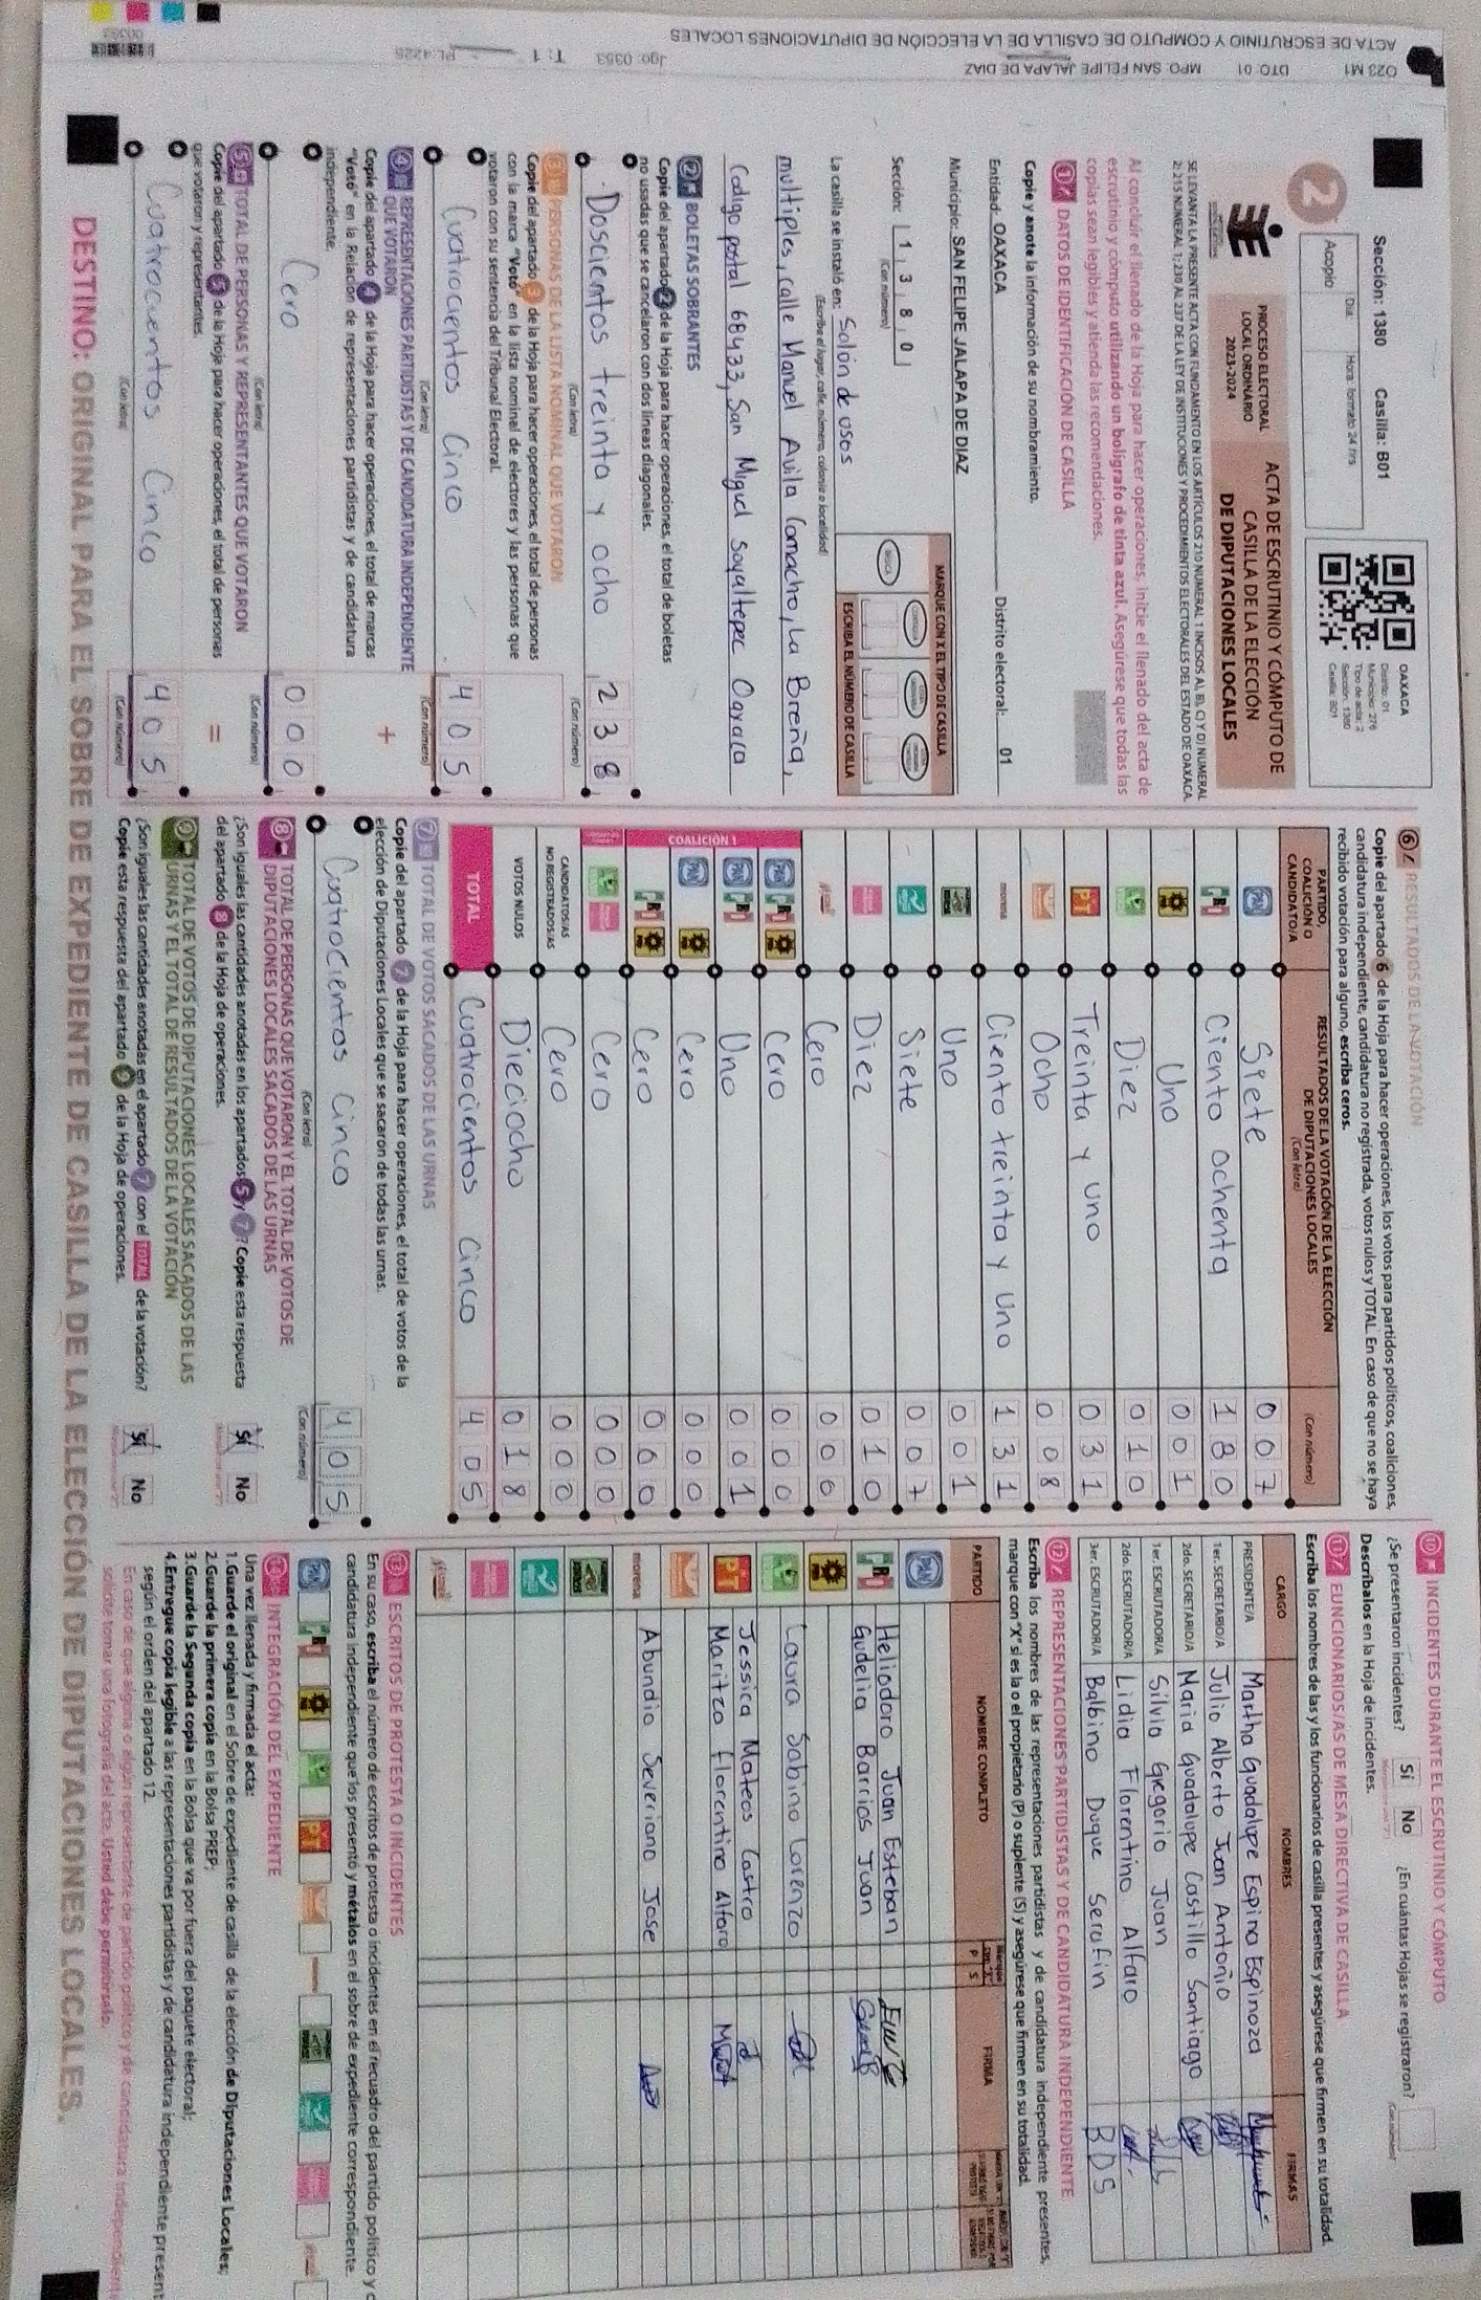 ACTA DE ESCRUTINIO Y CÓMPUTO DE CASILLA DE LA ELECCIÓN DE DIPUTACIONES LOCALES
O23 M1 DTO: 01 MPO: SAN FELIPE JALAPA DE DIAZ Jgo: 0353 T: 1 PL:4225
Sección: 1380 Casilla: B01
2
Día: Hora: formato 24 hrs
Acopio
OAXACA
Distrito: 01
Municipio: 276
Tipo de acta: 2
Sección: 1380
Casilla: B01
PROCESO ELECTORAL
LOCAL ORDINARIO
2023-2024
ACTA DE ESCRUTINIO Y CÓMPUTO DE
CASILLA DE LA ELECCIÓN
DE DIPUTACIONES LOCALES
SE LEVANTA LA PRESENTE ACTA CON FUNDAMENTO EN LOS ARTÍCULOS 210 NUMERAL 1 INCISOS A), B), C) Y D) NUMERAL
2; 215 NUMERAL 1; 230 AL 237 DE LA LEY DE INSTITUCIONES Y PROCEDIMIENTOS ELECTORALES DEL ESTADO DE OAXACA.
Al concluir el llenado de la Hoja para hacer operaciones, inicie el llenado del acta de
escrutinio y cómputo utilizando un bolígrafo de tinta azul. Asegúrese que todas las
copias sean legibles y atienda las recomendaciones.
1 DATOS DE IDENTIFICACIÓN DE CASILLA
Copie y anote la información de su nombramiento.
Entidad: OAXACA Distrito electoral: 01
Municipio: SAN FELIPE JALAPA DE DIAZ
Sección: 1 3 8 0
(Con número)
MARQUE CON X EL TIPO DE CASILLA
BÁSICA
ESCRIBA EL NÚMERO DE CASILLA
La casilla se instaló en: Salón de usos
(Escriba el lugar, calle, número, colonia o localidad)
multiples, calle Manuel Avila Camacho, La Breña,
Codigo postal 68433, San Miguel Soyaltepec Oaxaca
2 BOLETAS SOBRANTES
Copie del apartado 2 de la Hoja para hacer operaciones, el total de boletas
no usadas que se cancelaron con dos líneas diagonales.
Doscientos treinta y ocho 2 3 8
(Con letra) (Con número)
3 PERSONAS DE LA LISTA NOMINAL QUE VOTARON
Copie del apartado 3 de la Hoja para hacer operaciones, el total de personas
con la marca "Votó" en la lista nominal de electores y las personas que
votaron con su sentencia del Tribunal Electoral.
Cuatrocientos Cinco 4 0 5
(Con letra) (Con número)
4 REPRESENTACIONES PARTIDISTAS Y DE CANDIDATURA INDEPENDIENTE
QUE VOTARON
Copie del apartado 4 de la Hoja para hacer operaciones, el total de marcas
"Votó" en la Relación de representaciones partidistas y de candidatura
independiente.
+
Cero 0 0 0
(Con letra) (Con número)
5 TOTAL DE PERSONAS Y REPRESENTANTES QUE VOTARON
Copie del apartado 5 de la Hoja para hacer operaciones, el total de personas
que votaron y representantes.
=
Cuatrocientos Cinco 4 0 5
(Con letra) (Con número)
6 RESULTADOS DE LA VOTACIÓN
Copie del apartado 6 de la Hoja para hacer operaciones, los votos para partidos políticos, coaliciones,
candidatura independiente, candidatura no registrada, votos nulos y TOTAL. En caso de que no se haya
recibido votación para alguno, escriba ceros.
PARTIDO,
COALICIÓN O
CANDIDATO/A
RESULTADOS DE LA VOTACIÓN DE LA ELECCIÓN
DE DIPUTACIONES LOCALES
(Con letra) (Con número)
PAN Siete 0 0 7
PRI Ciento ochenta 1 8 0
PRD Uno 0 0 1
Diez 0 1 0
PT Treinta y uno 0 3 1
Ocho 0 0 8
morena Ciento treinta y uno 1 3 1
Uno 0 0 1
Siete 0 0 7
Diez 0 1 0
Cero 0 0 0
COALICIÓN 1
PAN PRI PRD Cero 0 0 0
PAN PRI Uno 0 0 1
PAN PRD Cero 0 0 0
PRI PRD Cero 0 0 0
Cero 0 0 0
CANDIDATOS/AS
NO REGISTRADOS/AS Cero 0 0 0
VOTOS NULOS Dieciocho 0 1 8
TOTAL Cuatrocientos Cinco 4 0 5
7 TOTAL DE VOTOS SACADOS DE LAS URNAS
Copie del apartado 7 de la Hoja para hacer operaciones, el total de votos de la
elección de Diputaciones Locales que se sacaron de todas las urnas.
Cuatrocientos Cinco 4 0 5
(Con letra) (Con número)
8 TOTAL DE PERSONAS QUE VOTARON Y EL TOTAL DE VOTOS DE
DIPUTACIONES LOCALES SACADOS DE LAS URNAS
¿Son iguales las cantidades anotadas en los apartados 5 y 7? Copie esta respuesta
del apartado 8 de la Hoja de operaciones.
Sí No
9 TOTAL DE VOTOS DE DIPUTACIONES LOCALES SACADOS DE LAS
URNAS Y EL TOTAL DE RESULTADOS DE LA VOTACIÓN
¿Son iguales las cantidades anotadas en el apartado 7 con el TOTAL de la votación?
Copie esta respuesta del apartado 9 de la Hoja de operaciones.
Sí No
10 INCIDENTES DURANTE EL ESCRUTINIO Y CÓMPUTO
¿Se presentaron incidentes? Sí No ¿En cuántas Hojas se registraron?
(Con número)
Descríbalos en la Hoja de incidentes.
11 FUNCIONARIOS/AS DE MESA DIRECTIVA DE CASILLA
Escriba los nombres de las y los funcionarios de casilla presentes y asegúrese que firmen en su totalidad.
CARGO NOMBRES FIRMAS
PRESIDENTE/A Martha Guadalupe Espina Espinoza
1er. SECRETARIO/A Julio Alberto Juan Antonio
2do. SECRETARIO/A Maria Guadalupe Castillo Santiago
1er. ESCRUTADOR/A Silvia Gregorio Juan
2do. ESCRUTADOR/A Lidia Florentino Alfaro
3er. ESCRUTADOR/A Balbino Duque Serafin BDS
12 REPRESENTACIONES PARTIDISTAS Y DE CANDIDATURA INDEPENDIENTE
Escriba los nombres de las representaciones partidistas y de candidatura independiente presentes,
marque con "X" si es la o el propietario (P) o suplente (S) y asegúrese que firmen en su totalidad.
PARTIDO NOMBRE COMPLETO P S FIRMA
PAN Heliodoro Juan Esteban
PRI Gudelia Barrios Juan
PRD
Laura Sabino Lorenzo
PT Jessica Mateos Castro
Maritza Florentino Alfaro
morena Abundio Severiano Jose
13 ESCRITOS DE PROTESTA O INCIDENTES
En su caso, escriba el número de escritos de protesta o incidentes en el recuadro del partido político y
candidatura independiente que los presentó y métalos en el sobre de expediente correspondiente.
PAN PRI PRD PT
14 INTEGRACIÓN DEL EXPEDIENTE
Una vez llenada y firmada el acta:
1.Guarde el original en el Sobre de expediente de casilla de la elección de Diputaciones Locales;
2.Guarde la primera copia en la Bolsa PREP;
3.Guarde la Segunda copia en la Bolsa que va por fuera del paquete electoral;
4.Entregue copia legible a las representaciones partidistas y de candidatura independiente present
según el orden del apartado 12.
En caso de que alguna o algún representante de partido político y de candidatura independiente
solicite tomar una fotografía del acta. Usted debe permitírselo.
DESTINO: ORIGINAL PARA EL SOBRE DE EXPEDIENTE DE CASILLA DE LA ELECCIÓN DE DIPUTACIONES LOCALES.